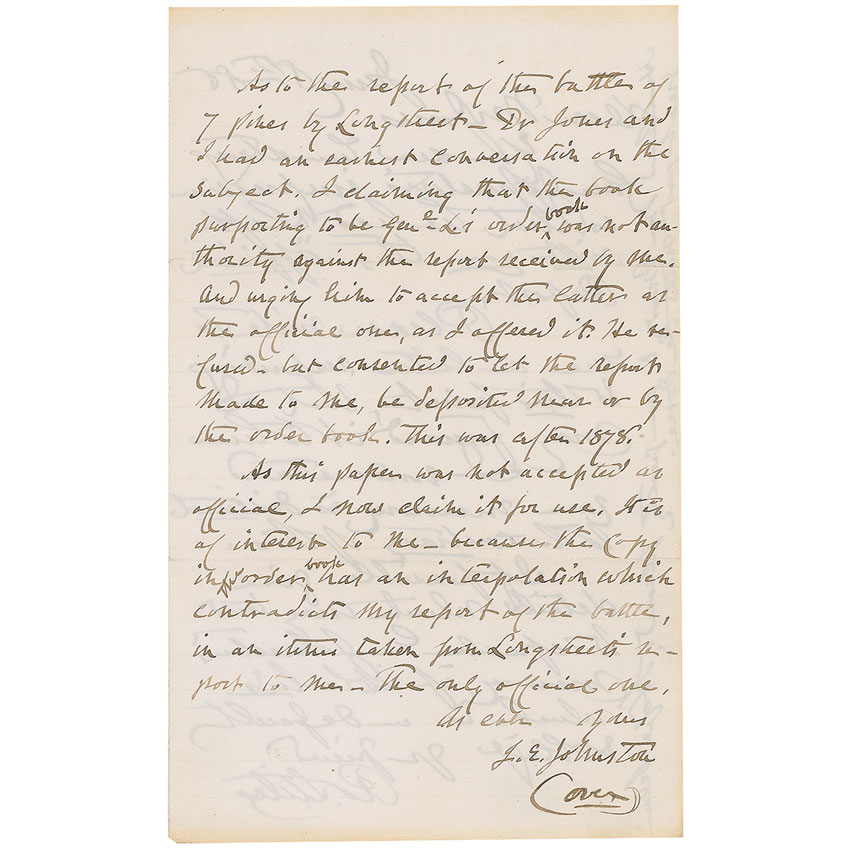 As to the report of the battle of
7 pines by Longstreet – Dr Jones and
I had an earnest conversation on the
subject. I claiming that the book
purporting to be Genl L's order book was not au-
thority against the report received by me.
And urging him to accept the latter as
the official one, as I offered it. He re-
fused – but consented to let the report
made to me, be deposited near or by
the order book. This was after 1878.
As this paper was not accepted as
official, I now claim it for use. It is
of interest to me – because the copy
in order book has an interpolation which
contradicts my report of the battle,
in an item taken from Longstreet's re-
port to me – the only official one.
As ever yours
J. E. Johnston
(over)